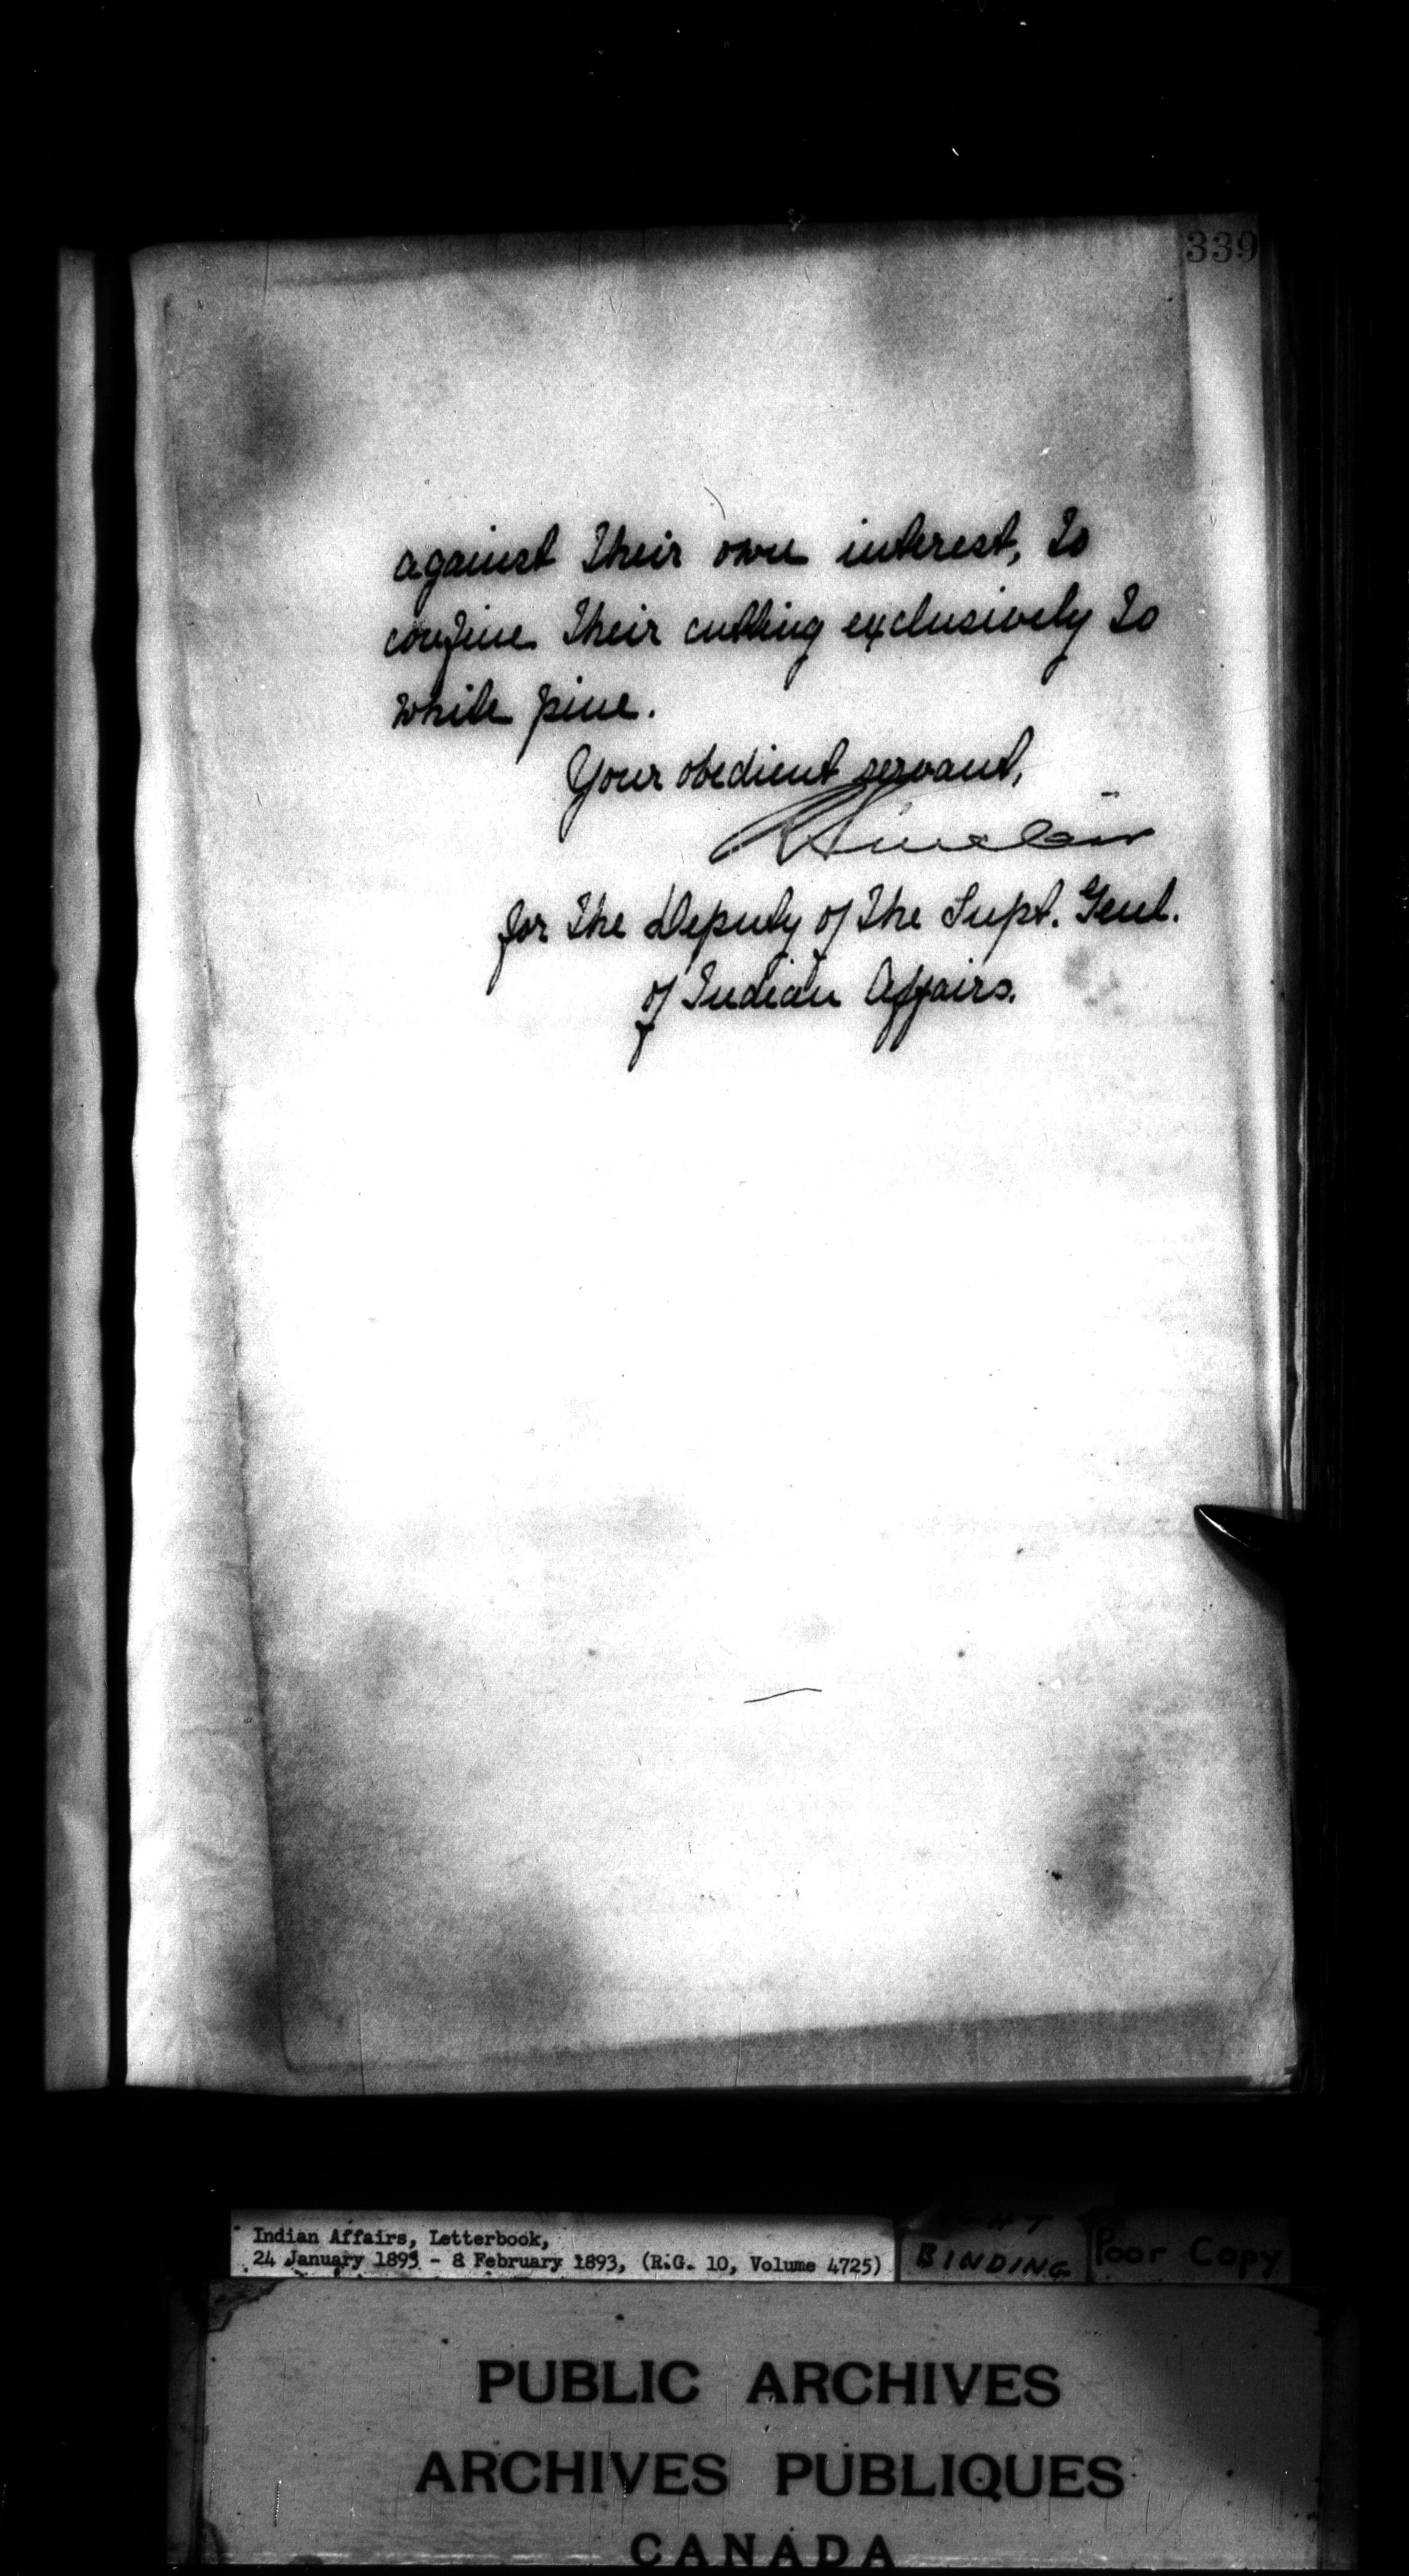 339
against their own interest, to
confine their cutting exclusively to
white pine.
Your obedient servant,
R Sinclair
for the Deputy of the Supt. Genl.
of Indian Affairs.
Indian Affairs, Letterbook,
24 January 1893 - 8 February 1893, (R.G. 10, Volume 4725)
BINDING
Poor Copy
PUBLIC ARCHIVES
ARCHIVES PUBLIQUES
CANADA